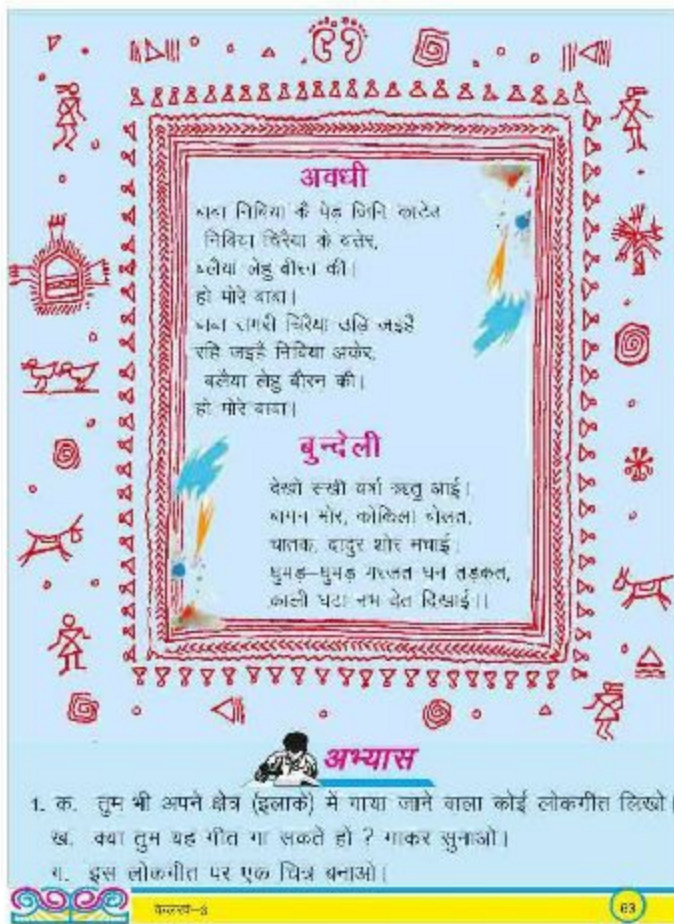 अवधी
बाबा निबिया कै पेड़ जिनि काटेउ
निबिया चिरैया के बसेर,
बलैया लेहु बीरन की।
हो मोरे बाबा।
बाबा सगरी चिरैया उड़ि जइहै
रहि जइहै निबिया अकेर,
बलैया लेहु बीरन की।
हो मोरे बाबा।
बुन्देली
देखो सखी वर्षा ऋतु आई।
बागन मोर, कोकिला बोलत,
चातक, दादुर शोर मचाई।
घुमड़–घुमड़ गरजत घन तड़कत,
काली घटा नभ देत दिखाई।।
अभ्यास
1. क. तुम भी अपने क्षेत्र (इलाके) में गाया जाने वाला कोई लोकगीत लिखो।
ख. क्या तुम यह गीत गा सकते हो ? गाकर सुनाओ।
ग. इस लोकगीत पर एक चित्र बनाओ।
63